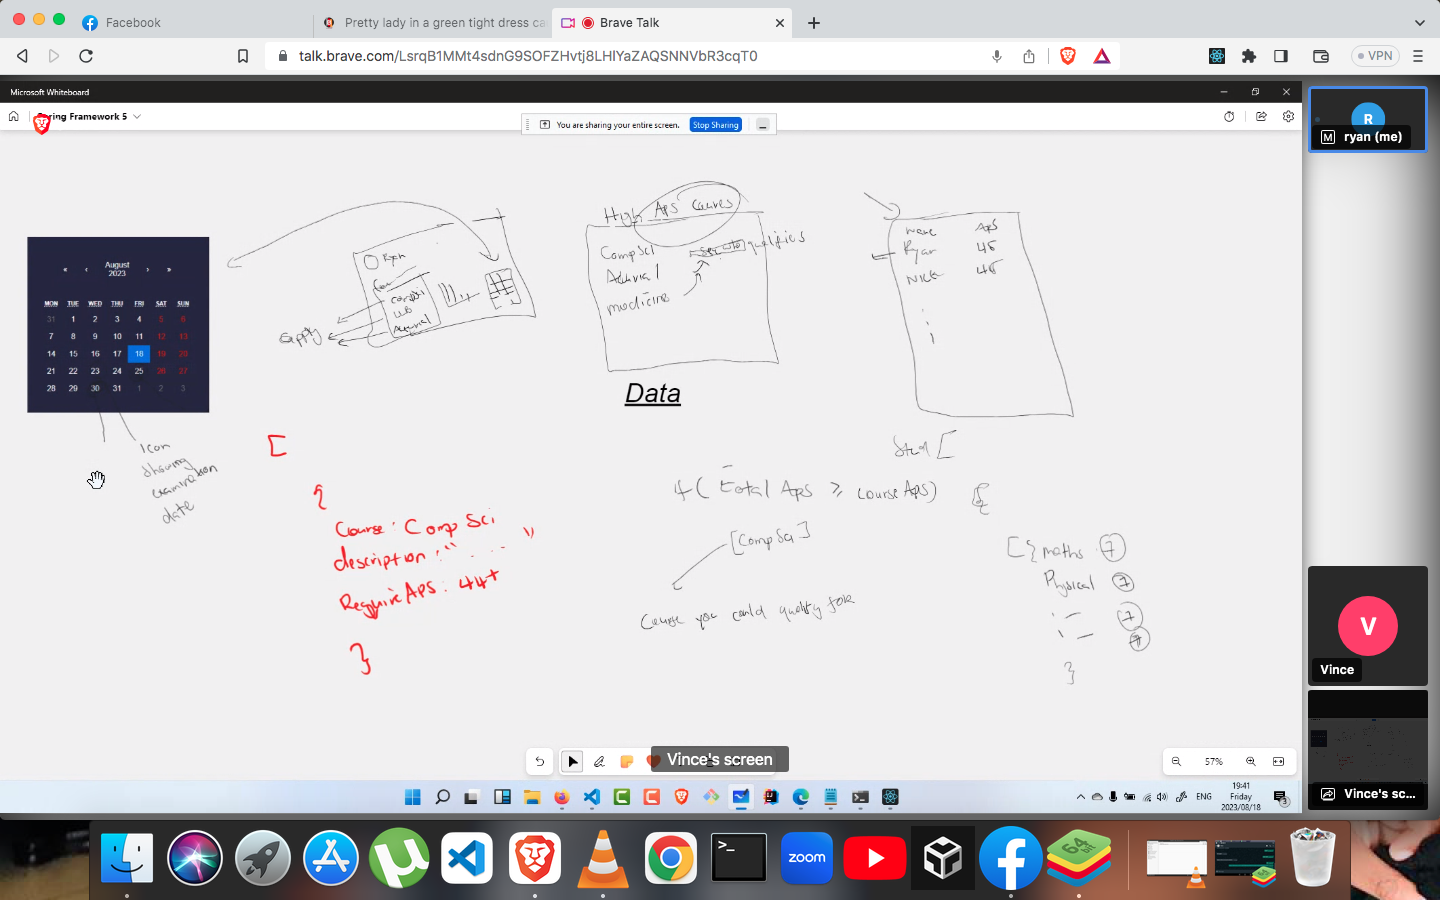 Facebook
Pretty lady in a green tight dress
Brave Talk
talk.brave.com/LsrqB1MMt4sdnG9SOFZHvtj8LHIYaZAQSNNVbR3cqT0
VPN
Microsoft Whiteboard
Spring Framework 5
You are sharing your entire screen.
Stop Sharing
R
M ryan (me)
August
2023
MON TUE WED THU FRI SAT SUN
31 1 2 3 4 5 6
7 8 9 10 11 12 13
14 15 16 17 18 19 20
21 22 23 24 25 26 27
28 29 30 31 1 2 3
Icon
showing
examination
date
Ryan
compsci
apply
High Aps Courses
CompSci
qualifies
Actuarial
medicine
name Aps
Ryan 45
Nick 45
Data
[
{
Course: CompSci
description: "...."
RequireAPS: 44+
}
[
if (total Aps ≥ courseAps)
{
[CompSci]
Course you could qualify for
[{ maths 7
Physical 7
7
7
}
Vince's screen
57%
V
Vince
Vince's sc...
ENG
19:41
Friday
2023/08/18
3
>_
zoom
64
bit